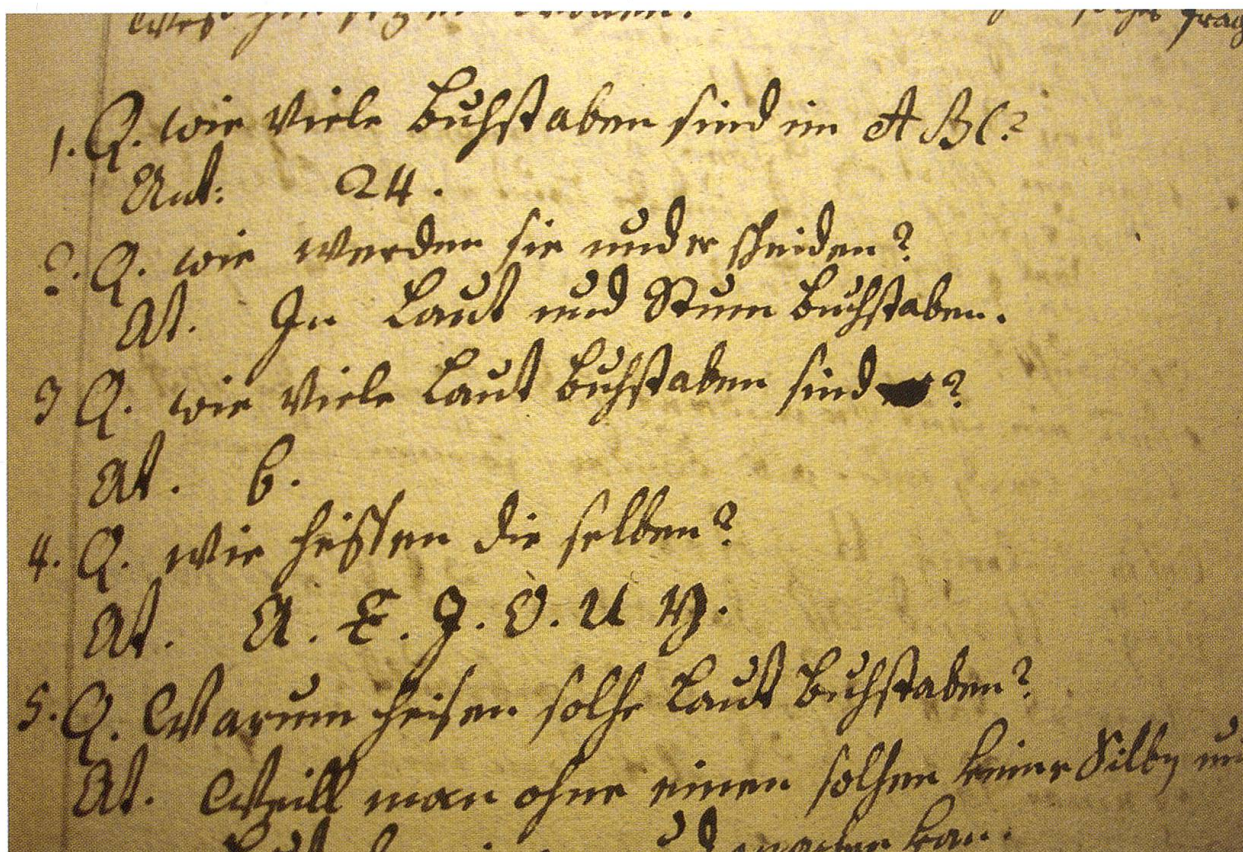 1. Q. wie Viele Buchstaben sind im A B C?
Ant: 24.
2. Q. wie werden sie underscheiden?
At. In Laut und Stum Buchstaben.
3 Q. wie Viele Laut Buchstaben sind ?
At. 6.
4. Q. wie heissen die selben?
At. A. E. I. O. U Y.
5. Q. Warum heisen solche Laut Buchstaben?
At. Weill man ohne einen solchen keine Silby
machen kan.